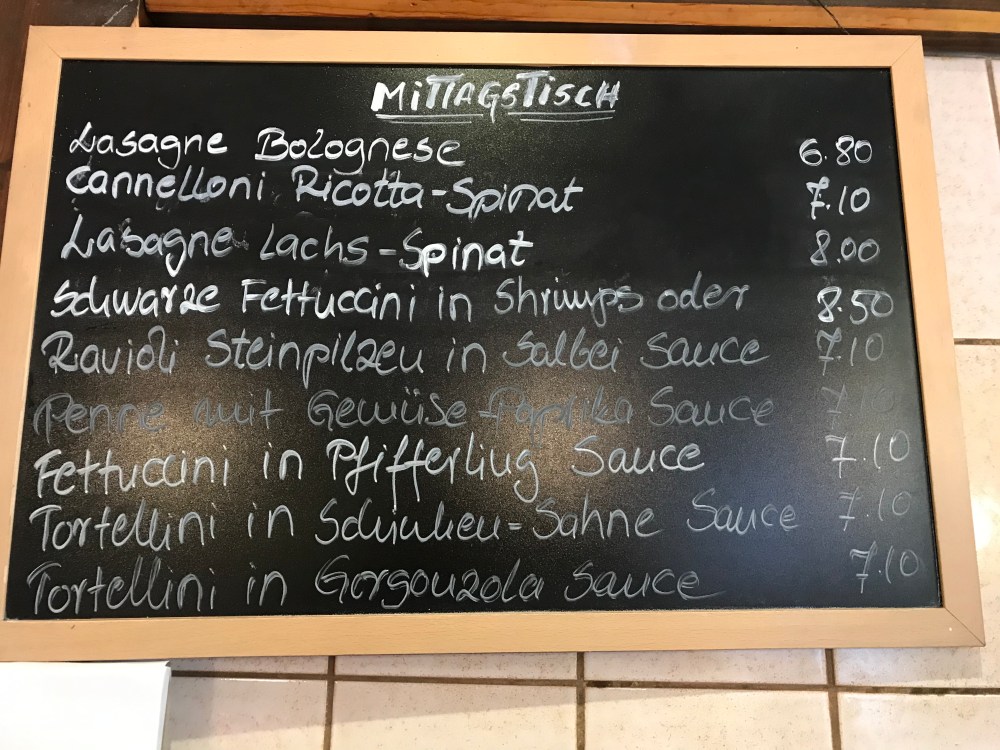 MITTAGSTISCH
Lasagne Bolognese 6.80
Cannelloni Ricotta-Spinat 7.10
Lasagne Lachs-Spinat 8.00
Schwarze Fettuccini in Shrimps oder 8.50
Ravioli Steinpilzen in Salbei Sauce 7.10
Penne mit Gemüse-Paprika Sauce 7.10
Fettuccini in Pfifferling Sauce 7.10
Tortellini in Schinken-Sahne Sauce 7.10
Tortellini in Gorgonzola Sauce 7.10